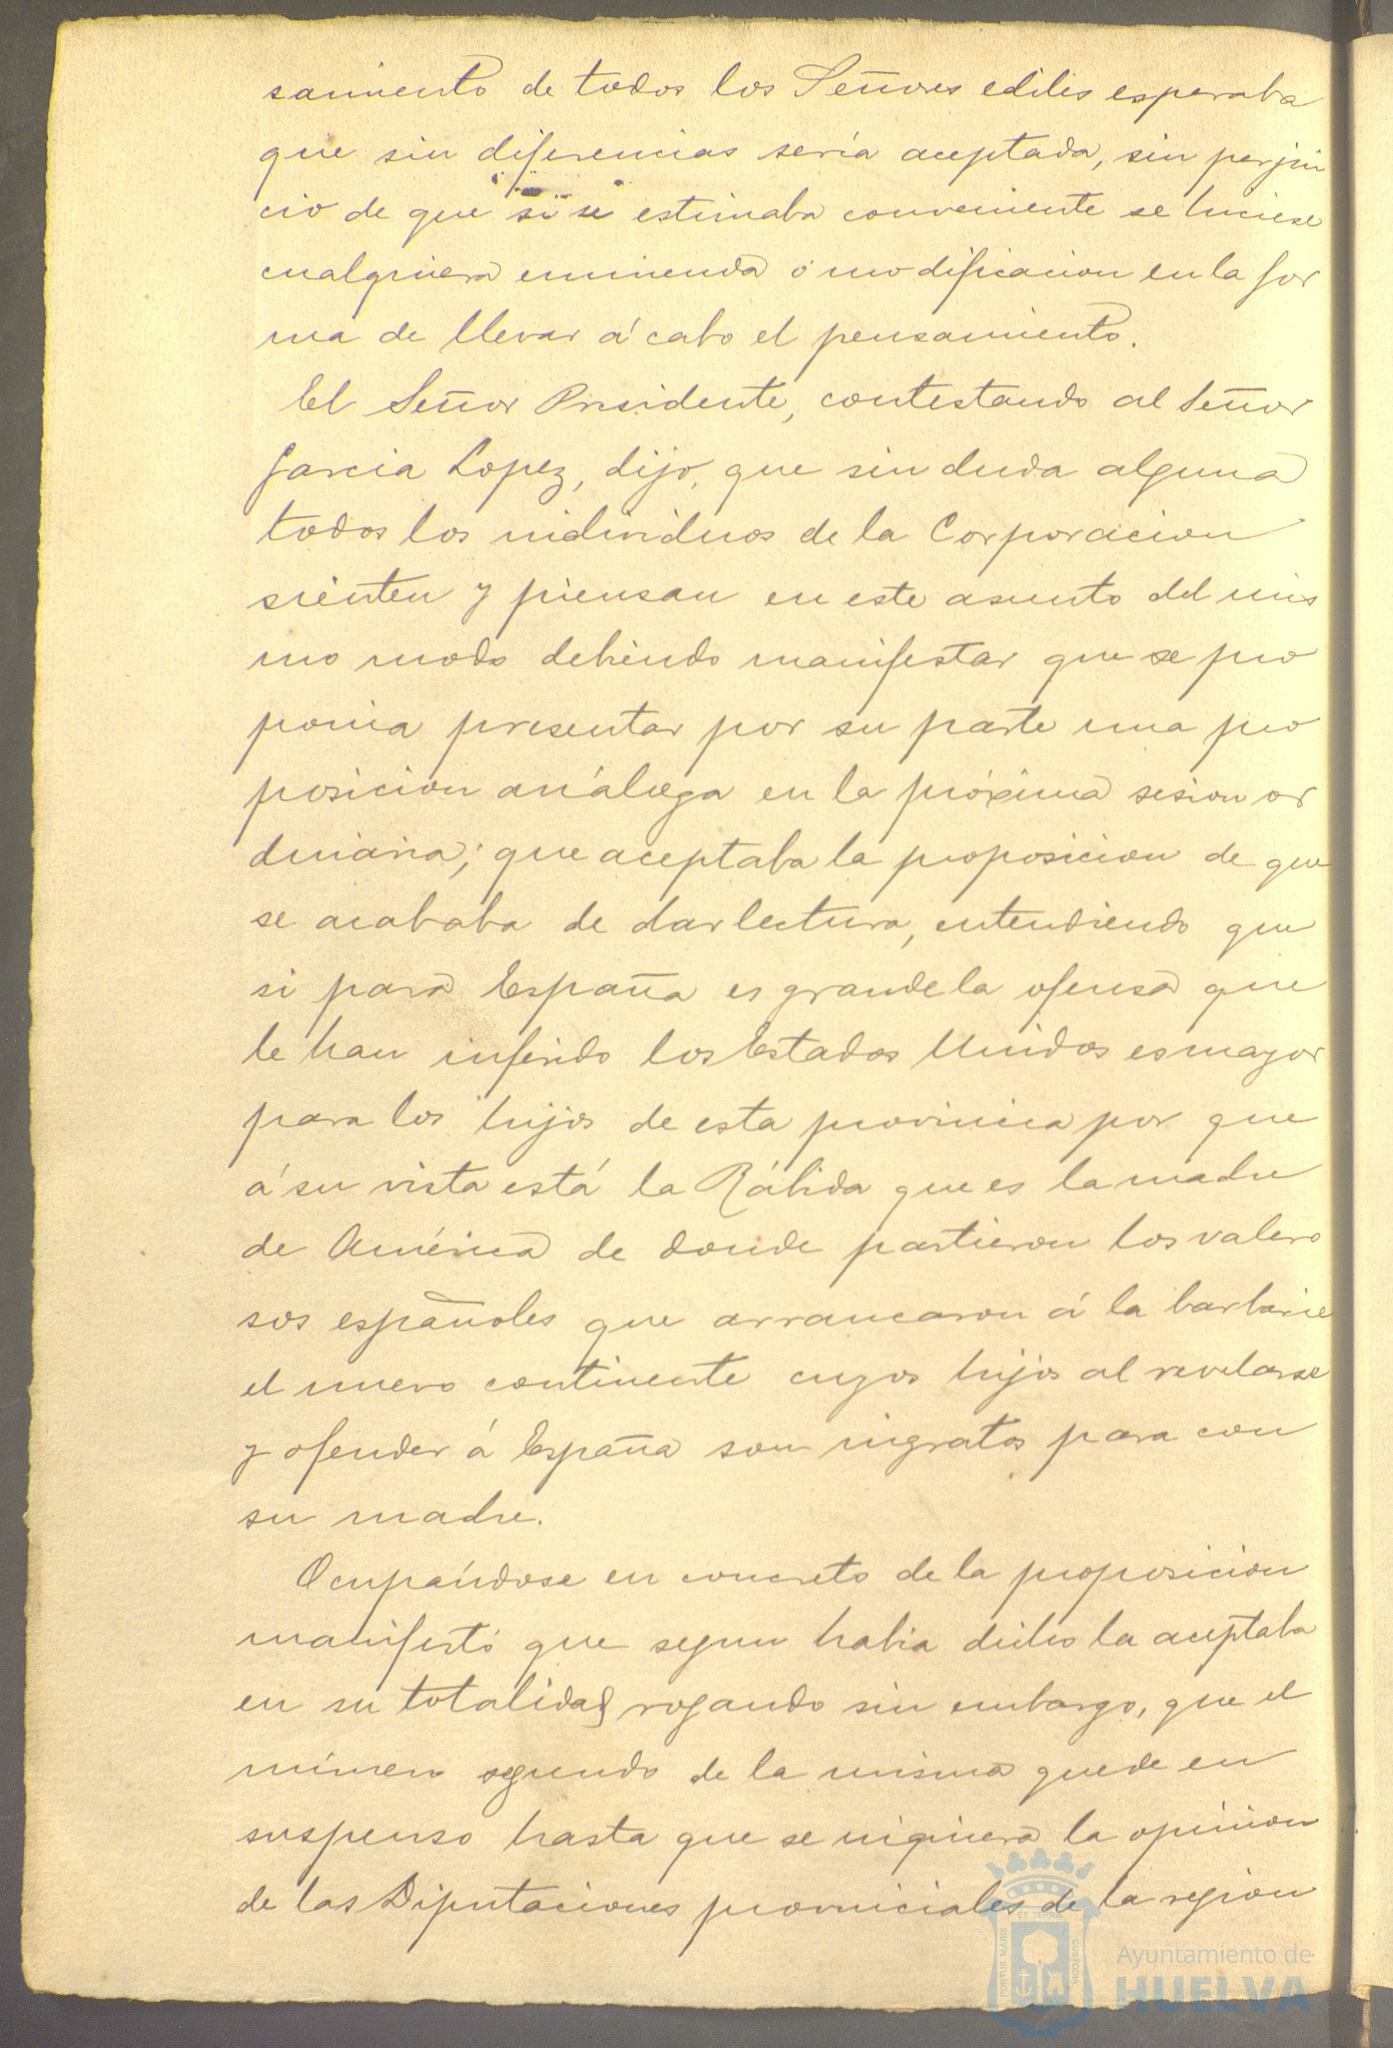 samiento de todos los Señores ediles esperaba
que sin diferencias sería aceptada, sin perjui
cio de que si se estimaba conveniente se hiciese
cualquiera enmienda ó modificacion en la for
ma de llevar á cabo el pensamiento.
El Señor Presidente, contestando al Señor
Garcia Lopez, dijo, que sin duda alguna
todos los individuos de la Corporacion
sienten y piensan en este asunto del mis
mo modo debiendo manifestar que se pro
ponia presentar por su parte una pro
posicion análoga en la próxima sesion or
dinaria; que aceptaba la proposicion de que
se acababa de dar lectura, entendiendo que
si para España es grande la ofensa que
le han inferido los Estados Unidos es mayor
para los hijos de esta provincia por que
á su vista está la Rábida que es la madre
de América de donde partieron los valero
sos españoles que arrancaron á la barbarie
el nuevo continente cuyos hijos al revelarse
y ofender á España son ingratos para con
su madre.
Ocupándose en concreto de la proposicion
manifestó que segun habia dicho la aceptaba
en su totalidad rogando sin embargo, que el
número segundo de la misma quede en
suspenso hasta que se inquiera la opinion
de las Diputaciones provinciales de la region
PORTUS MARIS ET TERRAE CUSTODIA
Ayuntamiento de
HUELVA